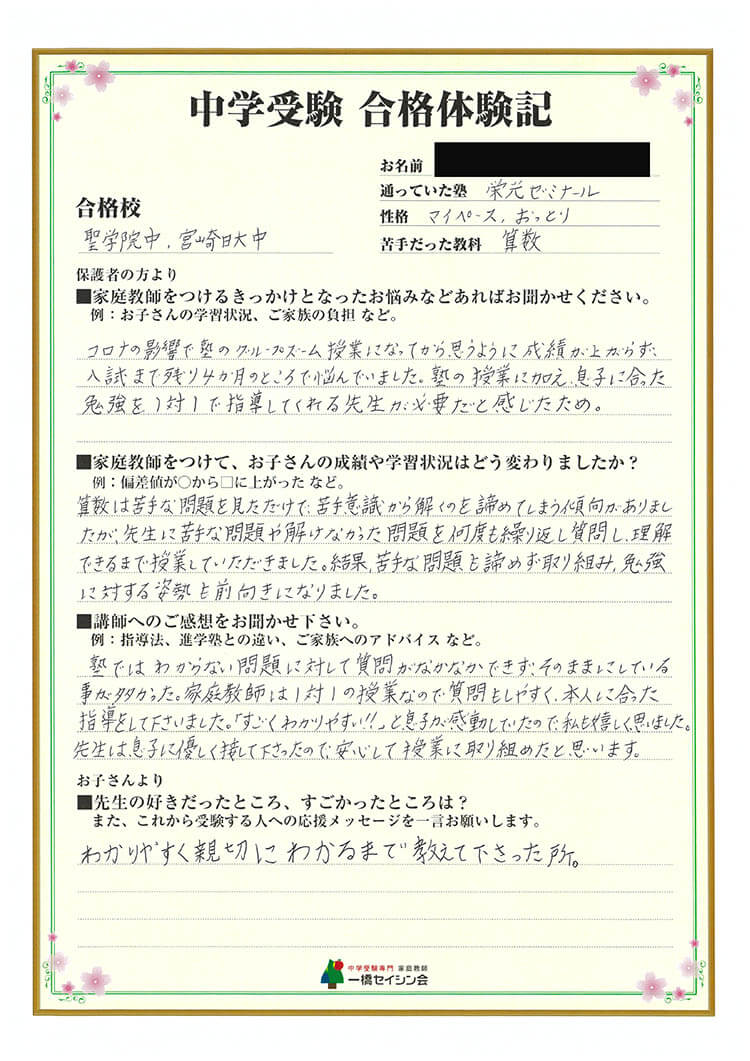 中学受験 合格体験記
お名前
通っていた塾 栄光ゼミナール
合格校
性格 マイペース、おっとり
聖学院中、宮崎日大中
苦手だった教科 算数
保護者の方より
■家庭教師をつけるきっかけとなったお悩みなどあればお聞かせください。
例：お子さんの学習状況、ご家族の負担 など。
コロナの影響で塾のグループズーム授業になってから思うように成績が上がらず、
入試まで残り4か月のところで悩んでいました。塾の授業に加え、息子に合った
勉強を1対1で指導してくれる先生が必要だと感じたため。
■家庭教師をつけて、お子さんの成績や学習状況はどう変わりましたか？
例：偏差値が○から□に上がった など。
算数は苦手な問題を見ただけで、苦手意識から解くのを諦めてしまう傾向がありまし
たが、先生に苦手な問題や解けなかった問題を何度も繰り返し質問し、理解
できるまで授業していただきました。結果、苦手な問題も諦めず取り組み、勉強
に対する姿勢も前向きになりました。
■講師へのご感想をお聞かせ下さい。
例：指導法、進学塾との違い、ご家族へのアドバイス など。
塾ではわからない問題に対して質問がなかなかできず、そのままにしている
事が多かった。家庭教師は1対1の授業なので質問もしやすく、本人に合った
指導をして下さいました。「すごくわかりやすい!!」と息子が感動していたので、私も嬉しく思いました。
先生は息子に優しく接して下さったので、安心して授業に取り組めたと思います。
お子さんより
■先生の好きだったところ、すごかったところは？
また、これから受験する人への応援メッセージを一言お願いします。
わかりやすく親切にわかるまで教えて下さった所。
中学受験専門 家庭教師
一橋セイシン会